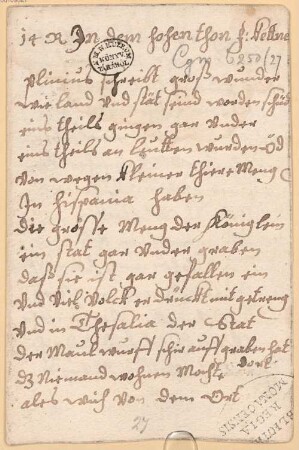 14 R In dem hohen thon h: kettne
Cgm 5250/27
Plinius schreibt gros wunder
wie land vnd stät seind worden schad
eins theils gingen gar vnder
eins theils an leutten wurden öd
von wegen kleiner thiere Meng
In hispania haben
die grosse Meng der königlein
ein stat gar vnder graben
dass sie ist gar gefallen ein
vnd viel volck erdrückt mit getreng
vnd in Thesalia der Stat
der Maulwurff schir auff graben hat
dz Niemand wohnen Mocht dort
ales wich von dem Ort
27